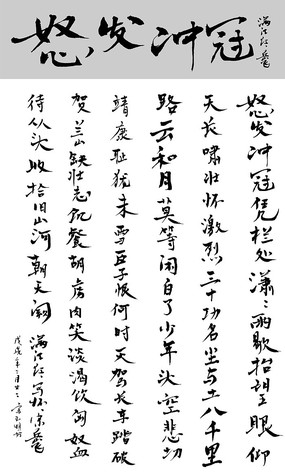 怒发冲冠
满江红 岳飞
怒发冲冠凭栏处潇々雨歇抬望眼仰
天长啸壮怀激烈三十功名尘与土八千里
路云和月莫等闲白了少年头空悲切
靖康耻犹未雪臣子恨何时灭驾长车踏破
贺兰山缺壮志饥餐胡虏肉笑谈渴饮匈奴血
待从头收拾旧山河朝天阙 满江红写怀宋岳飞
戊戌年